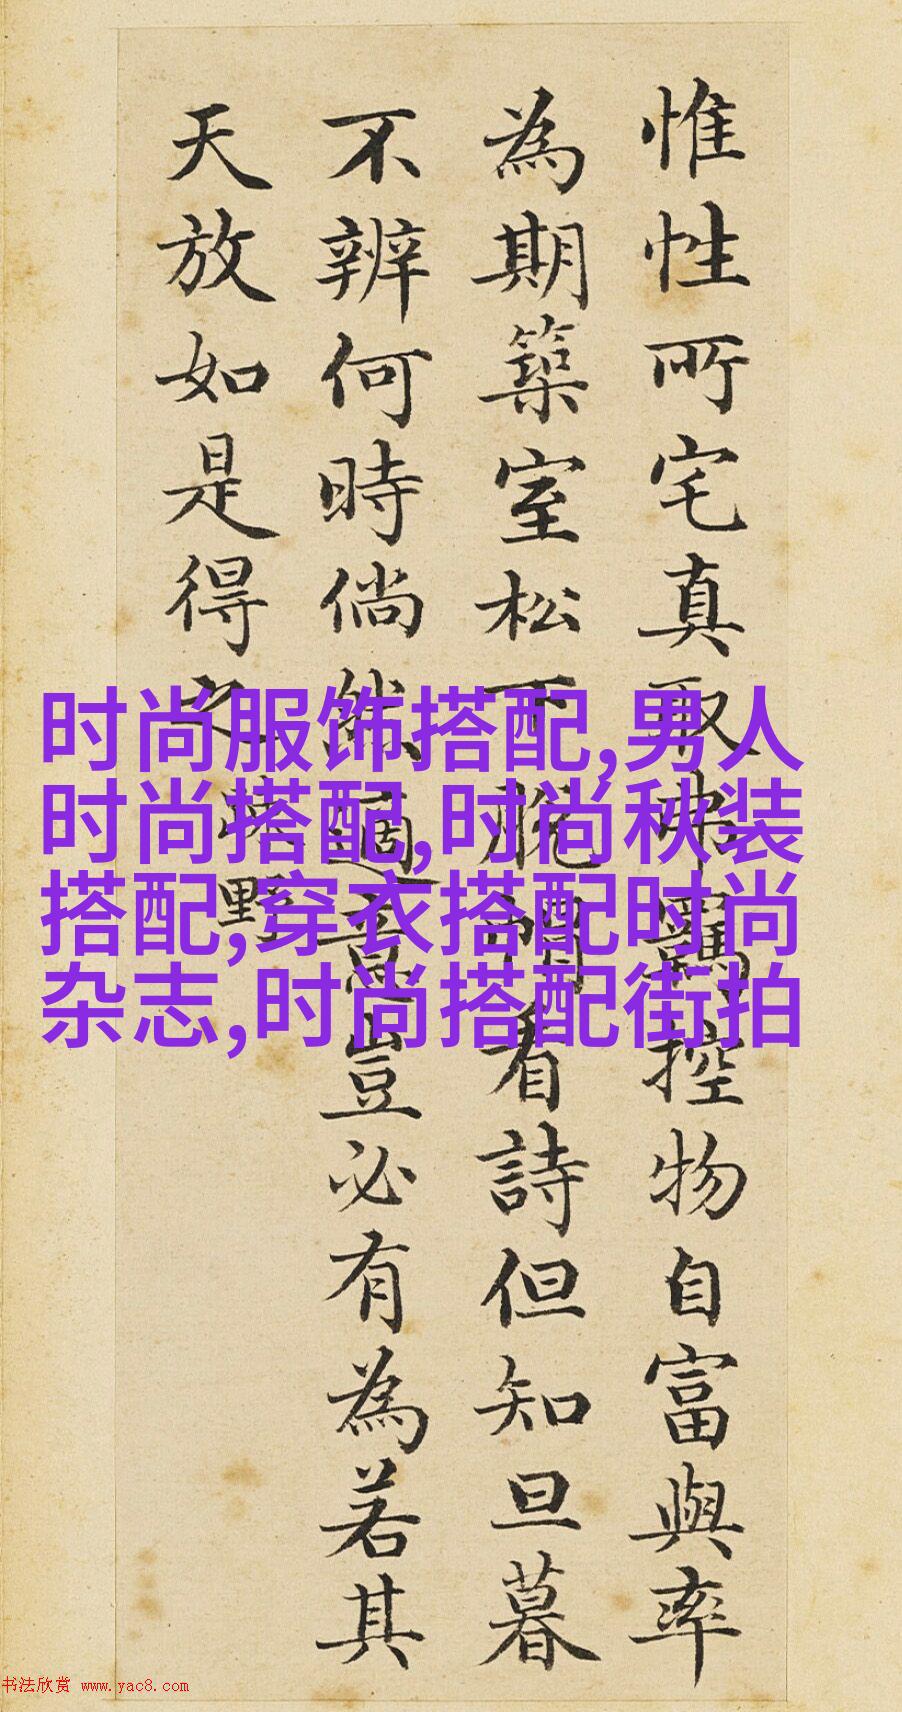 惟性所宅真取弗羈控物自富與率
為期築室松下脫帽看詩但知旦暮
不辨何時倘然適意豈必有為若其
天放如是得之
疎野
时尚服饰搭配,男人
时尚搭配,时尚秋装
搭配,穿衣搭配时尚
杂志,时尚搭配街拍
书法欣赏 www.yac8.com